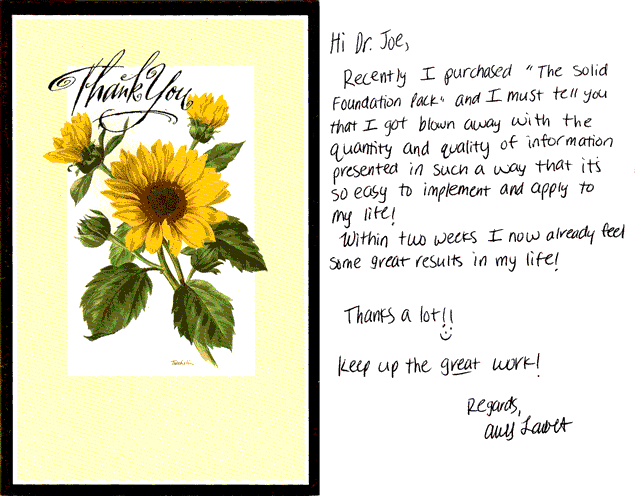 Thank You
Hi Dr. Joe,
Recently I purchased "The Solid
Foundation Pack" and I must tell you
that I got blown away with the
quantity and quality of information
presented in such a way that it's
so easy to implement and apply to
my life!
Within two weeks I now already feel
some great results in my life!
Thanks a lot!!
Keep up the great work!
Regards,